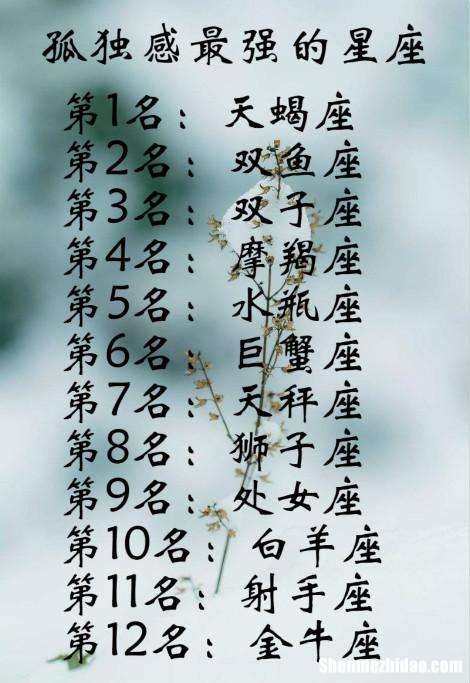 孤独感最强的星座
第1名：天蝎座
第2名：双鱼座
第3名：双子座
第4名：摩羯座
第5名：水瓶座
第6名：巨蟹座
第7名：天秤座
第8名：狮子座
第9名：处女座
第10名：白羊座
第11名：射手座
第12名：金牛座
Shenmezhidao.com